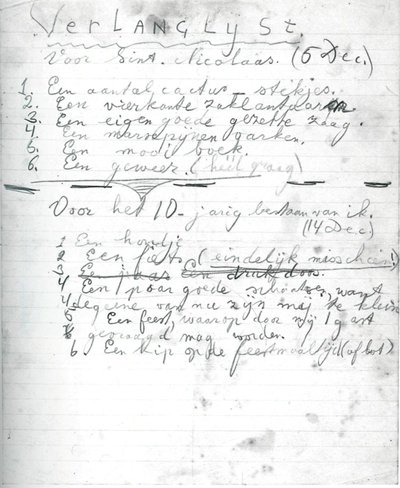 VerLANGLySt.
Voor Sint. Nicolaas. (5 Dec.)
1. Een aantal cactus-stekjes.
2. Een vierkante zaklantaren
3. Een eigen goede gezette zaag.
4. Een marsepijnen varken.
5. Een mooi boek.
6. Een geweer. (héél graag)
Voor het 10-jarig bestaan van ik.
(14 Dec)
1 Een hondje
2 Een fiets (eindelijk misschien)
3 Een drukdoos.
4 Een paar goede schaatsen, want
degene van nu zijn mij te klein
5 Een feest, waarop door mij 1 gast
gevraagd mag worden.
6. Een kip op de feestmaaltijd (of bot)